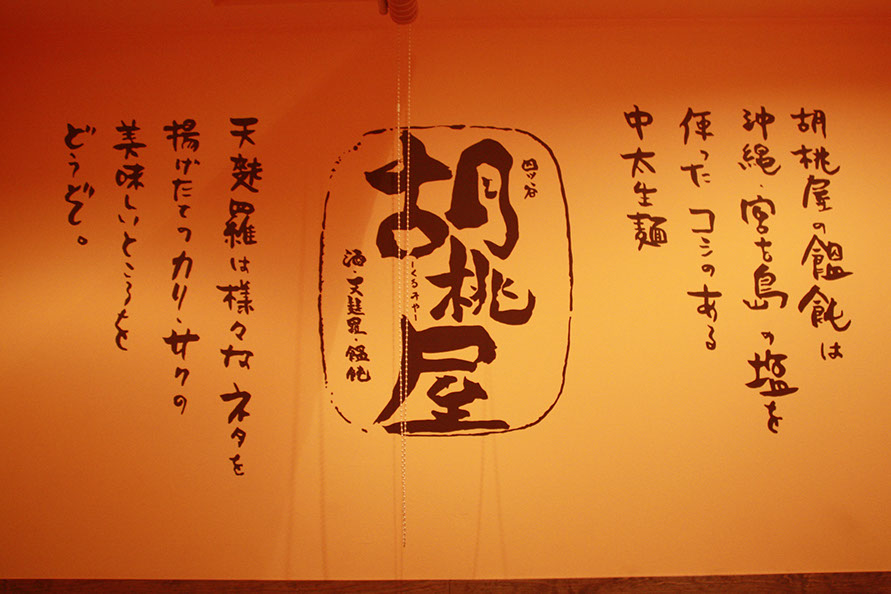 胡桃屋の饂飩は
沖縄・宮古島の塩を
使ったコシのある
中太生麺
四ッ谷
胡桃屋
くるみや
酒・天麩羅・饂飩
天麩羅は様々なネタを
揚げたてのカリ・サクの
美味しいところを
どうぞ。